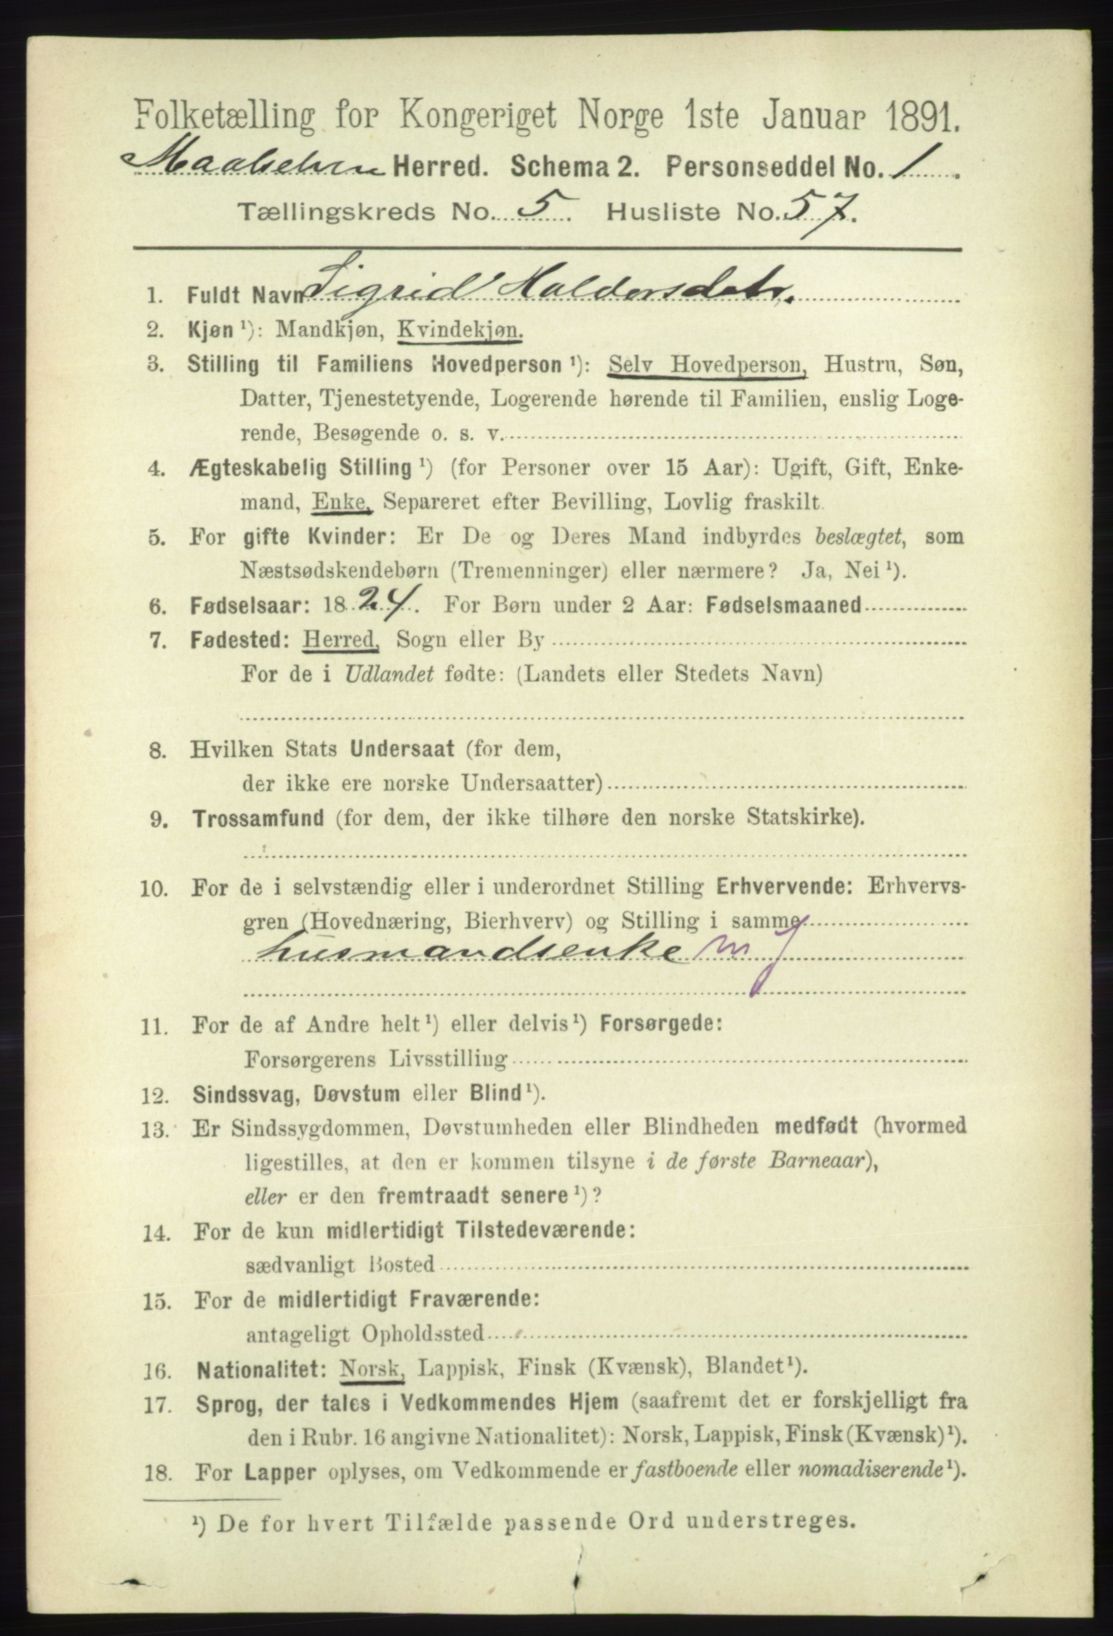 Folketælling for Kongeriget Norge 1ste Januar 1891.
Maalselven Herred. Schema 2. Personseddel No. 1.
Tællingskreds No. 5. Husliste No. 57.
1. Fuldt Navn Sigrid Haldorsdatr.
2. Kjøn ¹): Mandkjøn, Kvindekjøn.
3. Stilling til Familiens Hovedperson ¹): Selv Hovedperson, Hustru, Søn,
Datter, Tjenestetyende, Logerende hørende til Familien, enslig Loge-
rende, Besøgende o. s. v.
4. Ægteskabelig Stilling ¹) (for Personer over 15 Aar): Ugift, Gift, Enke-
mand, Enke, Separeret efter Bevilling, Lovlig fraskilt
5. For gifte Kvinder: Er De og Deres Mand indbyrdes beslægtet, som
Næstsødskendebørn (Tremenninger) eller nærmere? Ja, Nei ¹).
6. Fødselsaar: 1824. For Børn under 2 Aar: Fødselsmaaned
7. Fødested: Herred, Sogn eller By
For de i Udlandet fødte: (Landets eller Stedets Navn)
8. Hvilken Stats Undersaat (for dem,
der ikke ere norske Undersaatter)
9. Trossamfund (for dem, der ikke tilhøre den norske Statskirke).
10. For de i selvstændig eller i underordnet Stilling Erhvervende: Erhvervs-
gren (Hovednæring, Bierhverv) og Stilling i samme
husmandsenke m J
11. For de af Andre helt ¹) eller delvis ¹) Forsørgede:
Forsørgerens Livsstilling
12. Sindssvag, Døvstum eller Blind ¹).
13. Er Sindssygdommen, Døvstumheden eller Blindheden medfødt (hvormed
ligestilles, at den er kommen tilsyne i de første Barneaar),
eller er den fremtraadt senere ¹)?
14. For de kun midlertidigt Tilstedeværende:
sædvanligt Bosted
15. For de midlertidigt Fraværende:
antageligt Opholdssted
16. Nationalitet: Norsk, Lappisk, Finsk (Kvænsk), Blandet ¹).
17. Sprog, der tales i Vedkommendes Hjem (saafremt det er forskjelligt fra
den i Rubr. 16 angivne Nationalitet): Norsk, Lappisk, Finsk (Kvænsk) ¹).
18. For Lapper oplyses, om Vedkommende er fastboende eller nomadiserende ¹).
¹) De for hvert Tilfælde passende Ord understreges.